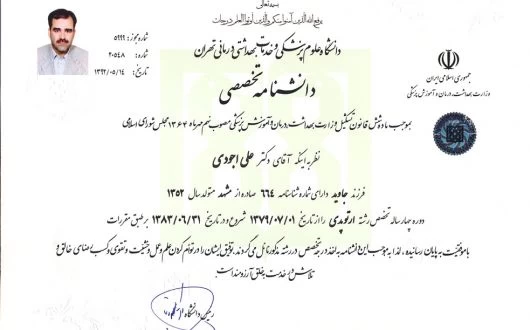 بسمه تعالی
یرفع الله الذین آمنوا منکم والذین اوتوا العلم درجات
دانشگاه علوم پزشکی و خدمات بهداشتی درمانی تهران
دانشنامه تخصصی
شماره مجوز: ۵۹۹۹
شماره: ۲۰۵۴۸
تاریخ: ۱۳۹۲/۰۵/۱۴
جمهوری اسلامی ایران
وزارت بهداشت، درمان و آموزش پزشکی
بموجب ماده شش قانون تشکیل وزارت بهداشت، درمان و آموزش پزشکی مصوب نهم مهرماه ۱۳۶۴ مجلس شورای اسلامی
نظر به اینکه آقای دکتر علی اجودی
فرزند جاوید دارای شماره شناسنامه ۶۶۴ صادره از مشهد متولد سال ۱۳۵۲
دوره چهار ساله تخصصی رشته ارتوپدی را از تاریخ ۱۳۷۹/۰۷/۰۱ شروع و در تاریخ ۱۳۸۳/۰۶/۳۱ برطبق مقررات
با موفقیت به پایان رسانیده، لذا به موجب این دانشنامه به اخذ درجه تخصص در رشته مذکور نائل می گردند. توفیق ایشان را در توام کردن علم و عمل و خشیت و تقوی و کسب رضای خالق و
تلاش در خدمت به خلق آرزومند است.
رئیس دانشگاه